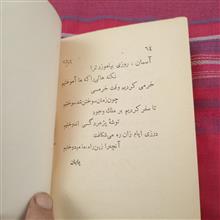 ۶۴
آسمان، روزی بیاموزد ترا
نکته هائی را که ما آموختیم
خرمی کردیم وقت خرمی
چون زمان سوختن شد سوختیم
تا سفر کردیم بر ملک وجود
توشهٔ پژمردگی اندوختیم
درزی ایام زان ره می‌شکافت
آنچه را زین راه، ما می‌دوختیم
پایان